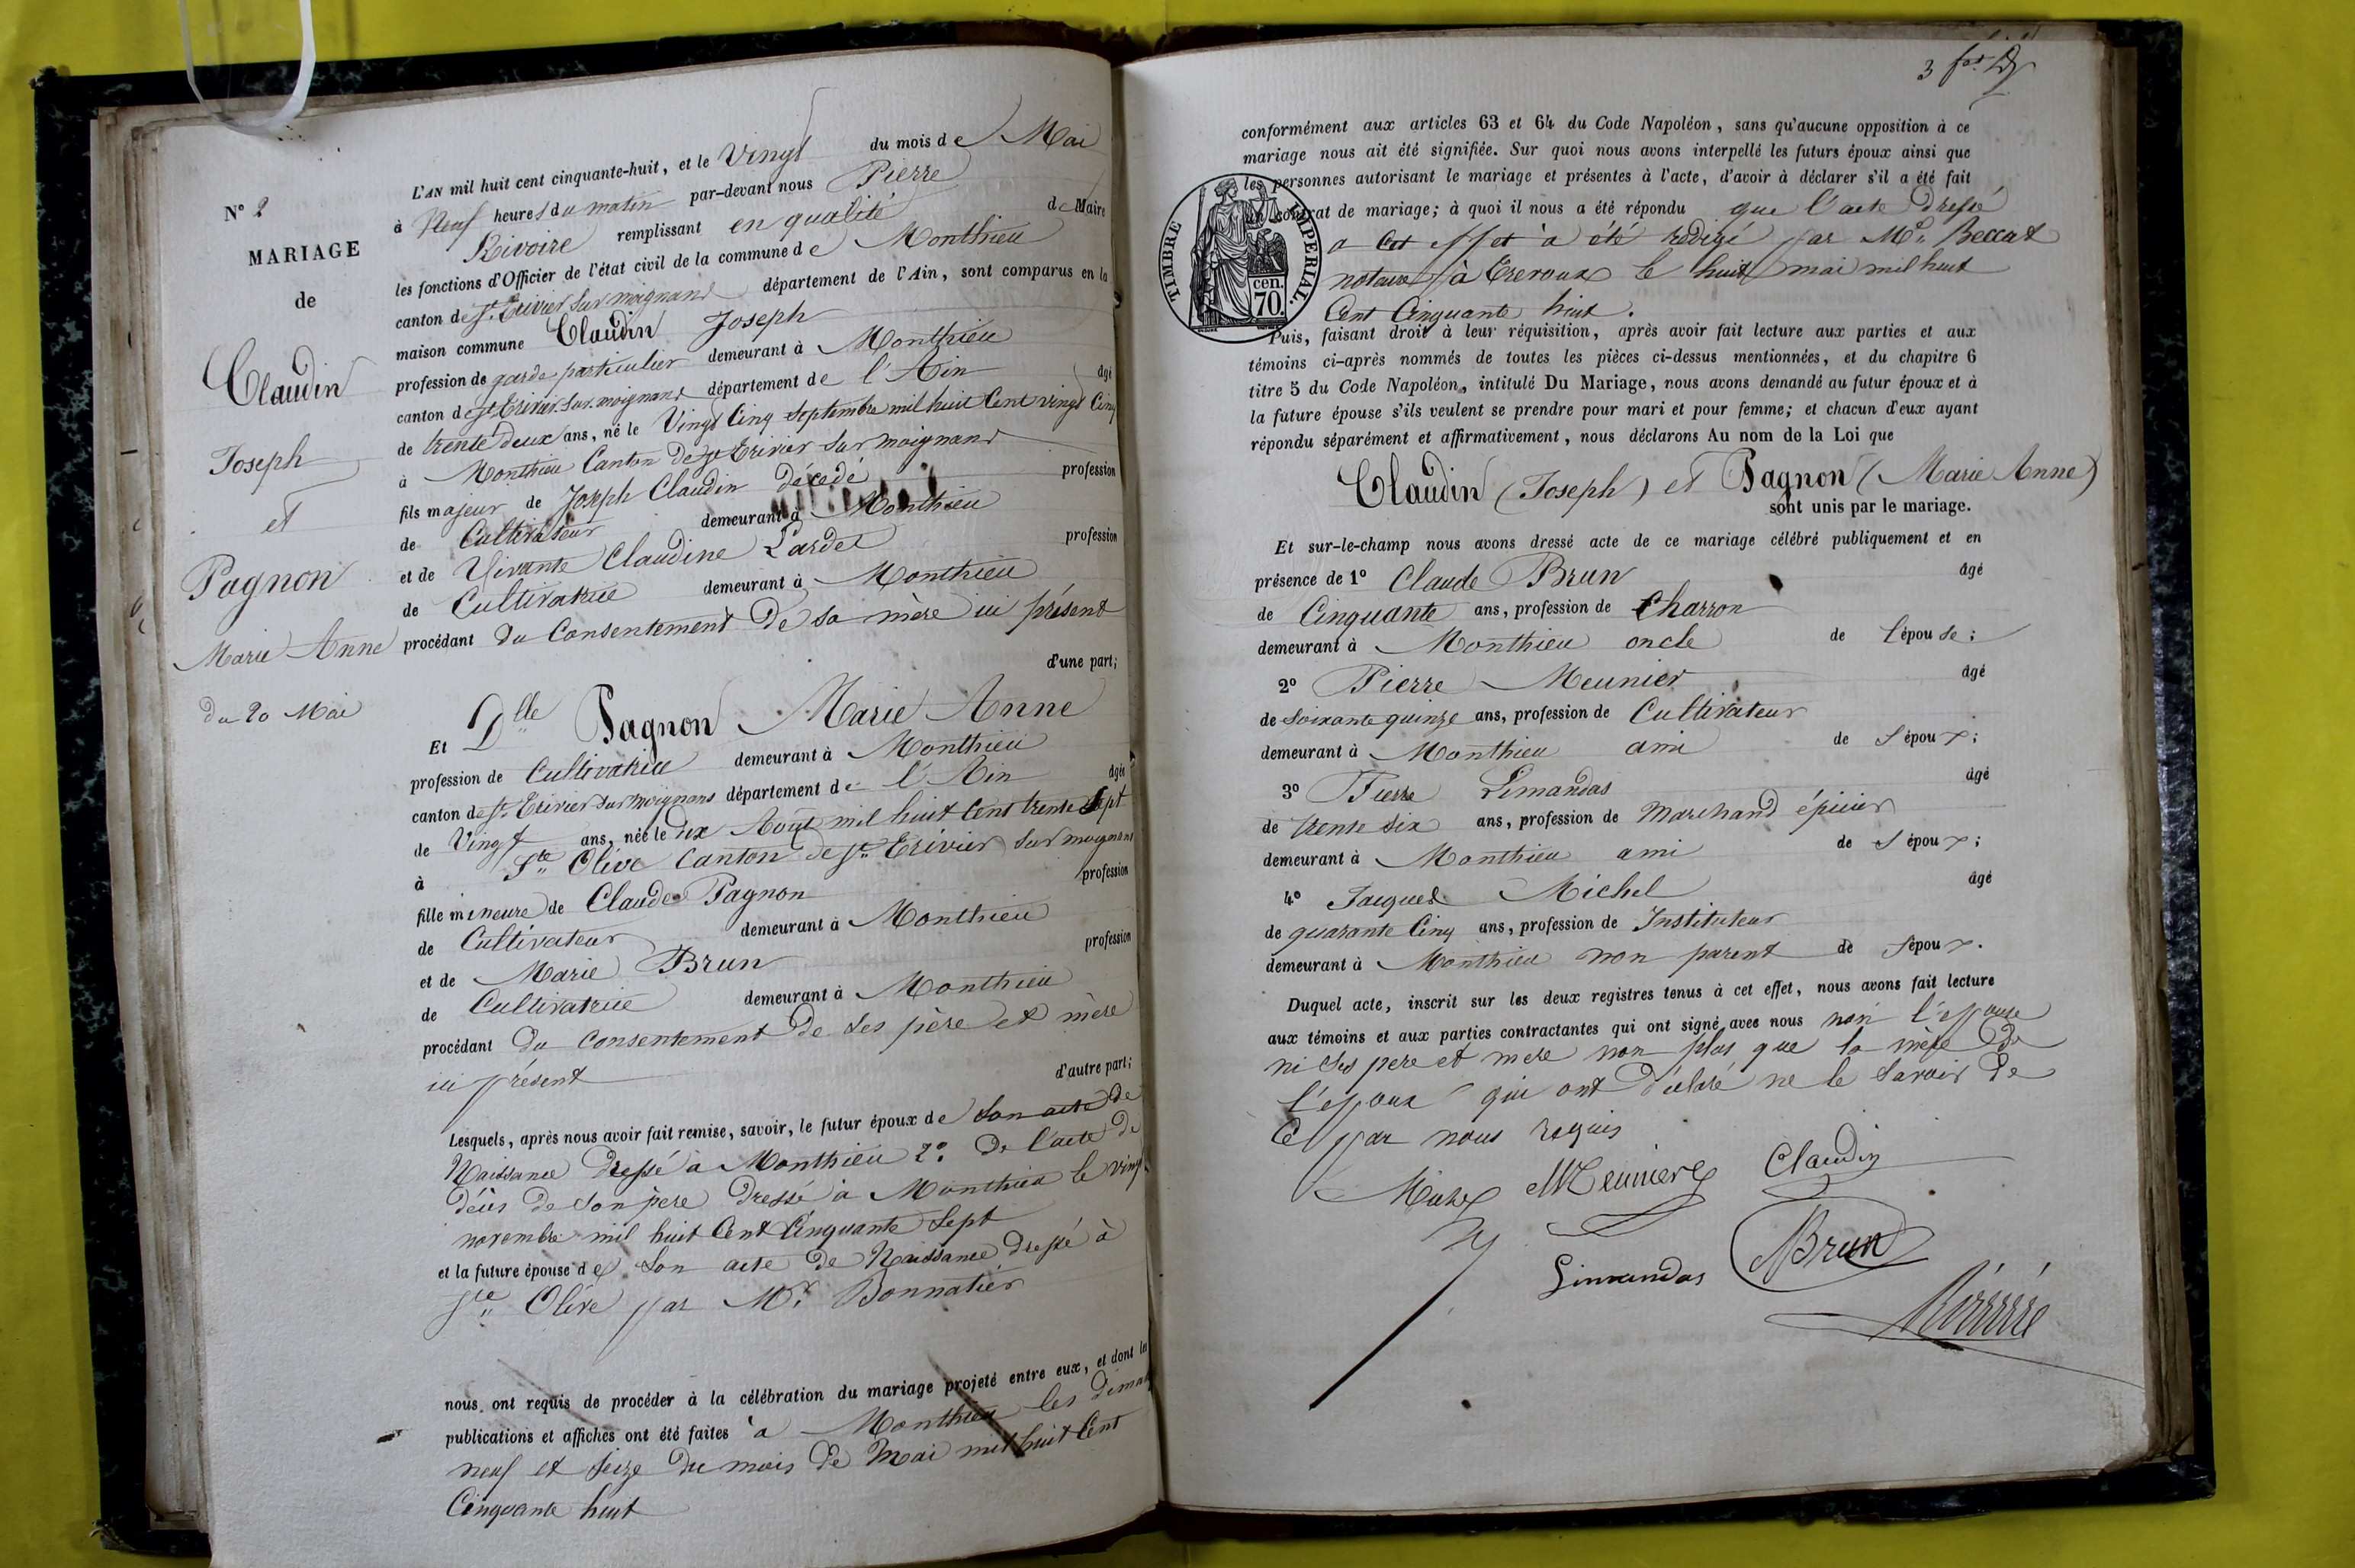 N° 2
MARIAGE
de
Claudin
Joseph
et
Pagnon
Marie Anne
du 20 Mai
L'AN mil huit cent cinquante-huit, et le Vingt du mois de Mai
à Neuf heures du matin par-devant nous Pierre
Rivoire remplissant en qualité de Maire
les fonctions d'Officier de l'état civil de la commune de Monthieu
canton de St. Trivier sur moignans département de l'Ain, sont comparus en la
maison commune Claudin Joseph
profession de garde particulier demeurant à Monthieu
canton de St Trivier sur moignans département de l'Ain âgé
de trente deux ans, né le Vingt Cinq Septembre mil huit Cent vingt Cinq
à Monthieu Canton de St Trivier sur moignans
fils majeur de Joseph Claudin décédé profession
de Cultivateur demeurant à Monthieu
et de Vivante Claudine Lardet profession
de Cultivatrice demeurant à Monthieu
procédant du Consentement De sa mère ici présent
d'une part;
Et Dlle Pagnon Marie Anne
profession de Cultivatrice demeurant à Monthieu
canton de St. Trivier sur moignans département de l'Ain âgée
de Vingt ans, née le dix Aout mil huit Cent trente Sept
à Ste Olive Canton de St. Trivier sur moignans
fille mineure de Claude Pagnon profession
de Cultivateur demeurant à Monthieu
et de Marie Brun profession
de Cultivatrice demeurant à Monthieu
procédant du consentement De ses père et mère
ici présent d'autre part;
Lesquels, après nous avoir fait remise, savoir, le futur époux de Son acte de
Naissance Dressé à Monthieu 2° De l'acte de
décès de son père dressé à Monthieu le vingt
novembre mil huit Cent Cinquante Sept
et la future épouse de Son acte de Naissance dressé à
Ste Olive par Mr. Bonnatier
nous ont requis de procéder à la célébration du mariage projeté entre eux, et dont les
publications et affiches ont été faites à Monthieu les
neuf et seize du mois de Mai mil huit Cent
Cinquante huit
conformément aux articles 63 et 64 du Code Napoléon, sans qu'aucune opposition à ce
mariage nous ait été signifiée. Sur quoi nous avons interpellé les futurs époux ainsi que
les personnes autorisant le mariage et présentes à l'acte, d'avoir à déclarer s'il a été fait
un contrat de mariage; à quoi il nous a été répondu que l'acte Dressé
a Cet effet a été rédigé par Me. Beccat
notaire à Trevoux le huit mai mil huit
Cent Cinquante huit.
TIMBRE IMPERIAL.
cen.
70.
Puis, faisant droit à leur réquisition, après avoir fait lecture aux parties et aux
témoins ci-après nommés de toutes les pièces ci-dessus mentionnées, et du chapitre 6
titre 5 du Code Napoléon, intitulé Du Mariage, nous avons demandé au futur époux et à
la future épouse s'ils veulent se prendre pour mari et pour femme; et chacun d'eux ayant
répondu séparément et affirmativement, nous déclarons Au nom de la Loi que
Claudin (Joseph) et Pagnon (Marie Anne)
sont unis par le mariage.
Et sur-le-champ nous avons dressé acte de ce mariage célébré publiquement et en
présence de 1° Claude Brun âgé
de Cinquante ans, profession de Charron
demeurant à Monthieu oncle de l'épouse;
2° Pierre Meunier âgé
de Soixante quinze ans, profession de Cultivateur
demeurant à Monthieu ami de l'époux;
3° Pierre Limandas âgé
de trente six ans, profession de Marchand épicier
demeurant à Monthieu ami de l'époux;
4° Jacques Michel âgé
de quarante Cinq ans, profession de Instituteur
demeurant à Monthieu non parent de l'époux.
Duquel acte, inscrit sur les deux registres tenus à cet effet, nous avons fait lecture
aux témoins et aux parties contractantes qui ont signé avec nous non l'épouse
ni ses pere et mere non plus que la mère De
l'époux qui ont Déclaré ne le Savoir De
Ce par nous requis
Meunier Claudin
Limandas Brun
Rivoire